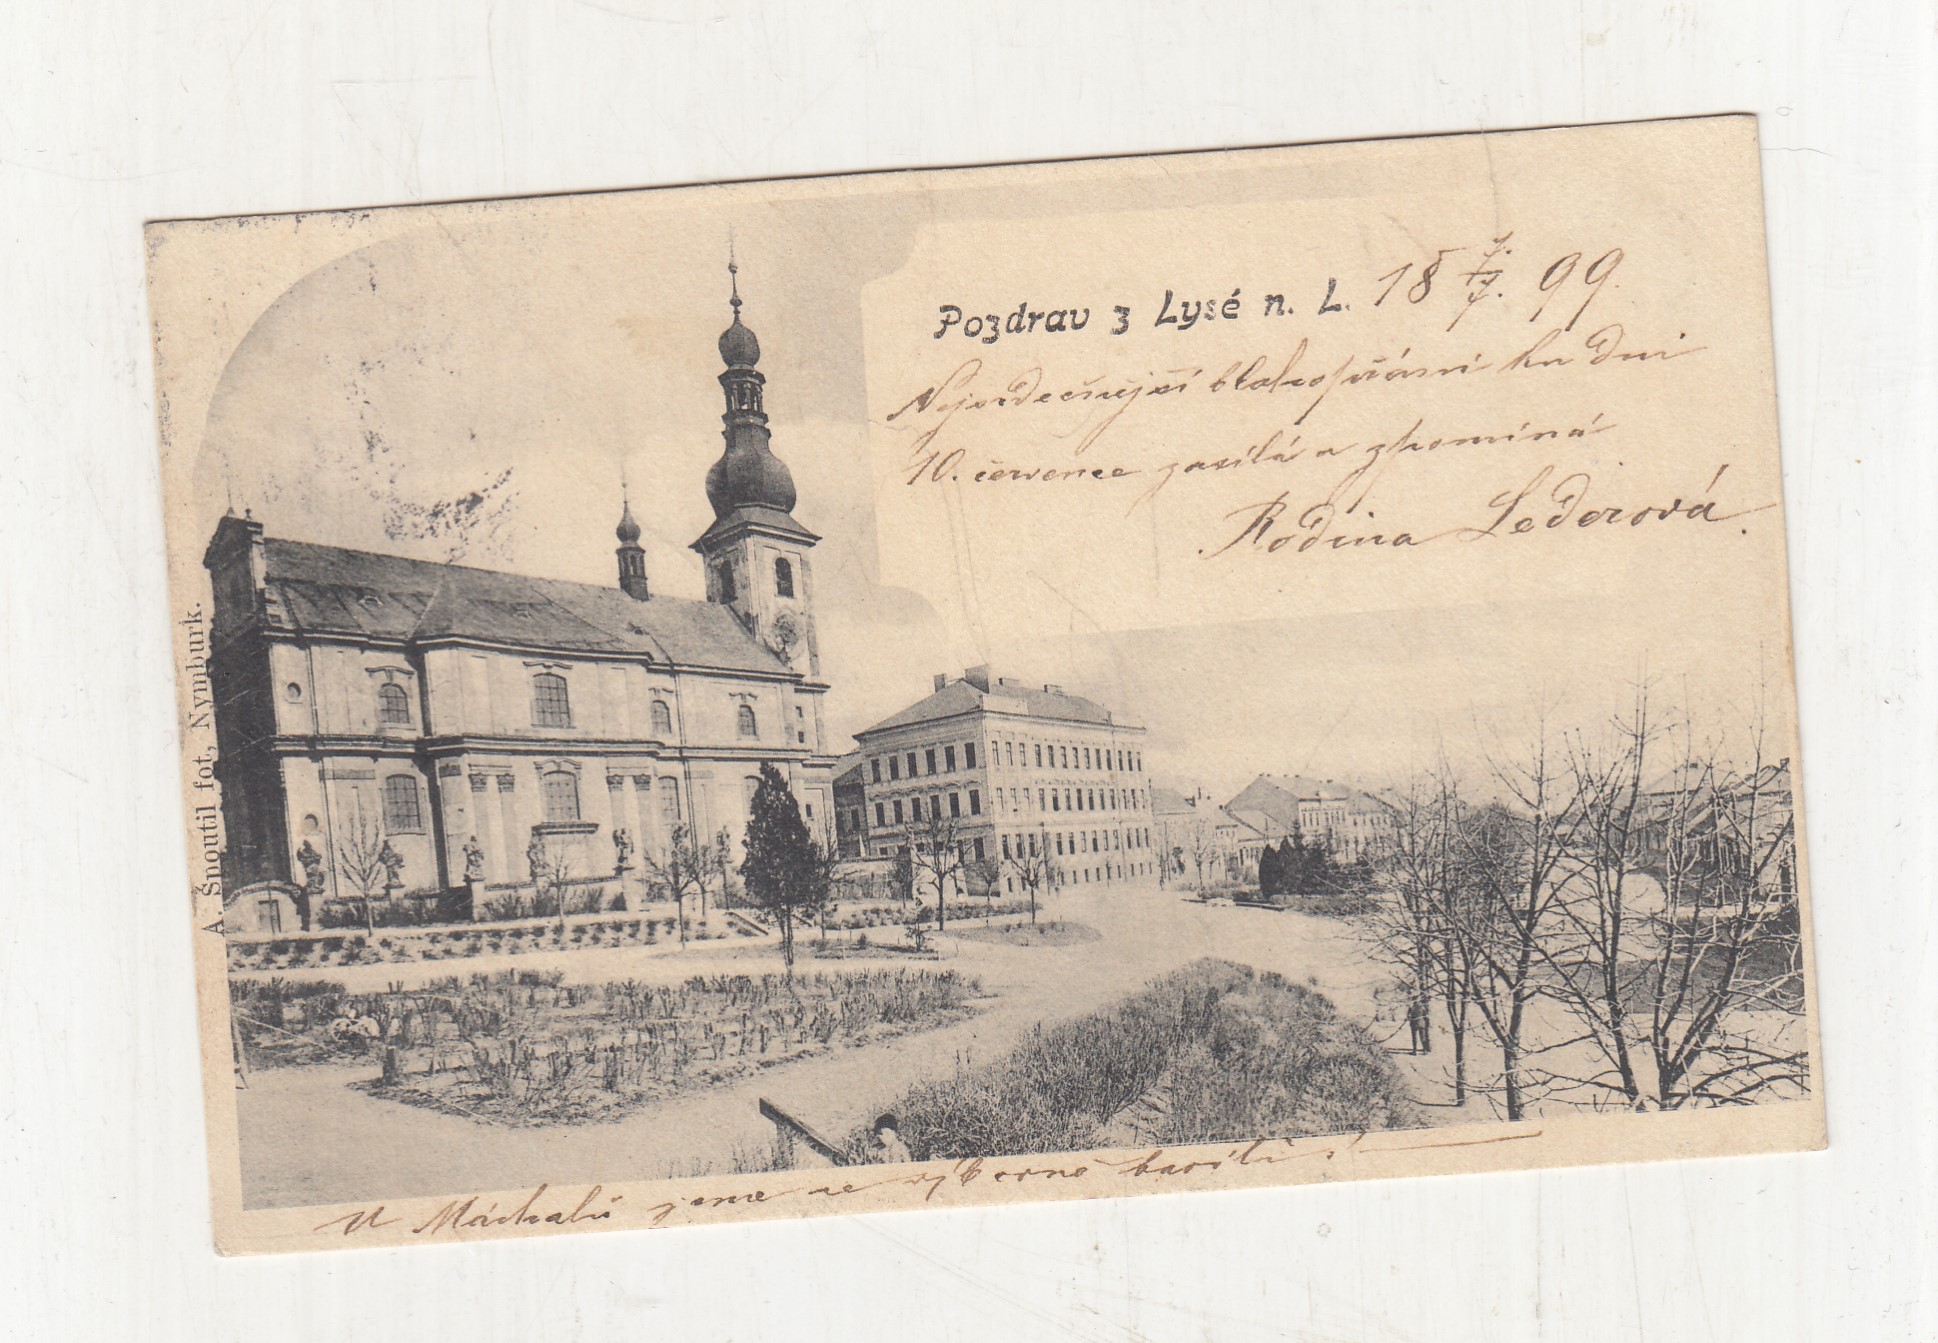 Pozdrav z Lysé n. L. 18 7/7. 99.
Nejsrdečnější blahopřání ku dni
10. července zasílá a zpomíná
Rodina Lederová.
A. Šnoutil fot, Nymburk.
U Máchalů jsme se výborně bavili!